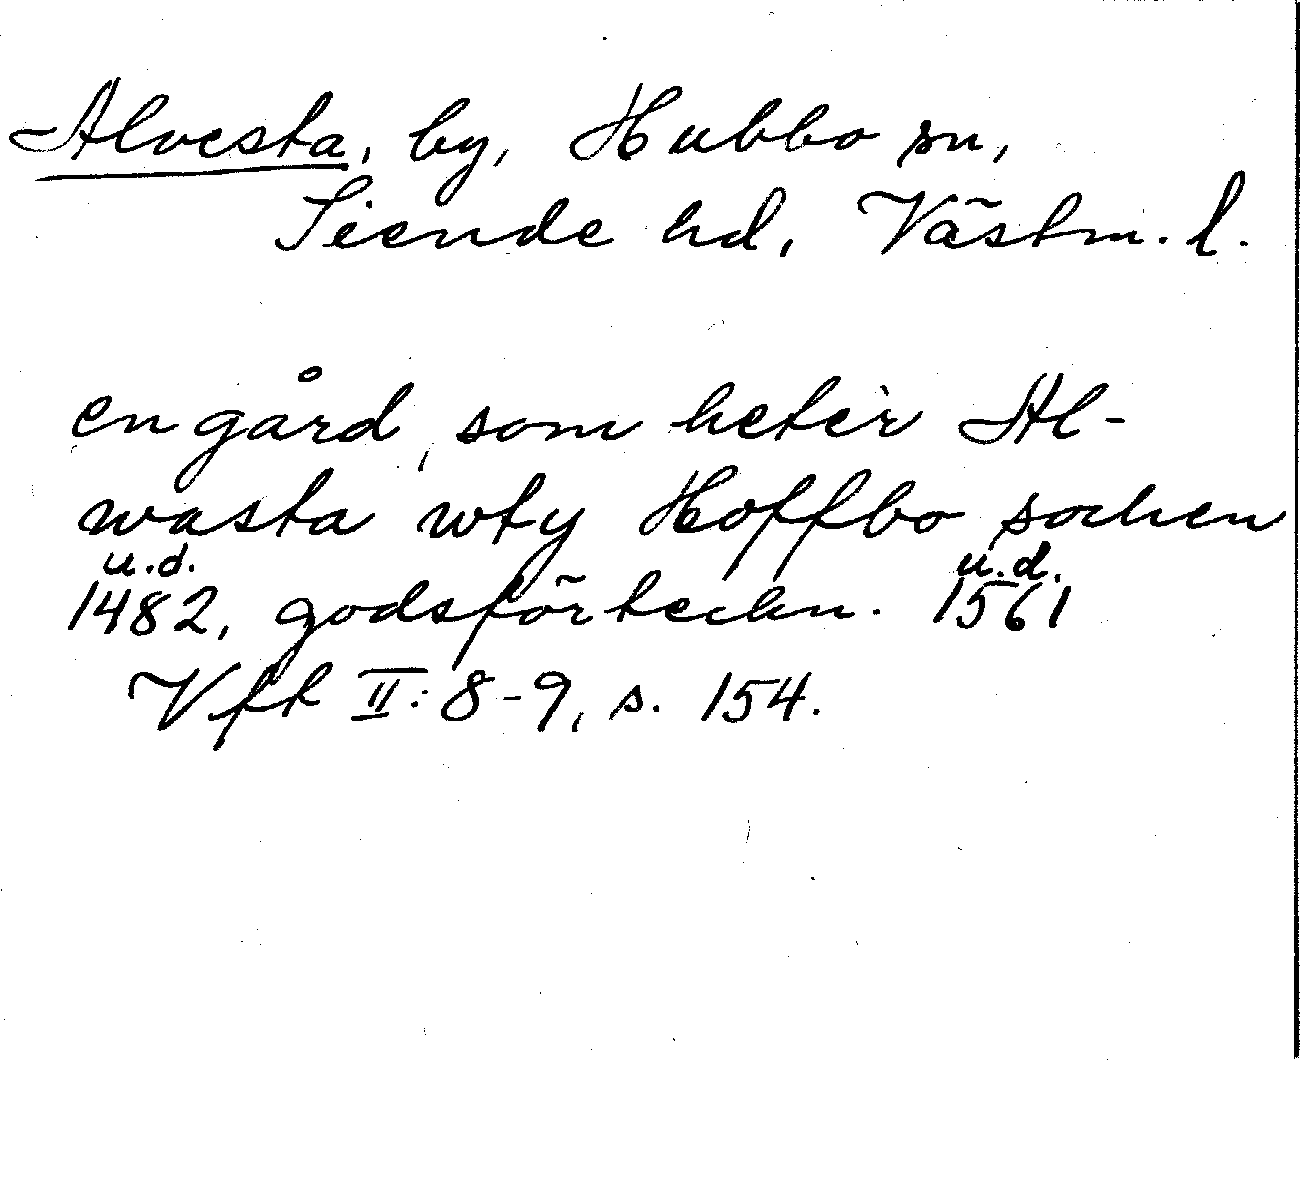 Alvesta, by, Hubbo sn,
Siende hd, Västm. l.
en gård, som heter Al-
wasta wty Hoffbo sochen
u.d. u.d.
1482, godsförteckn. 1561
Vfk II: 8-9, s. 154.